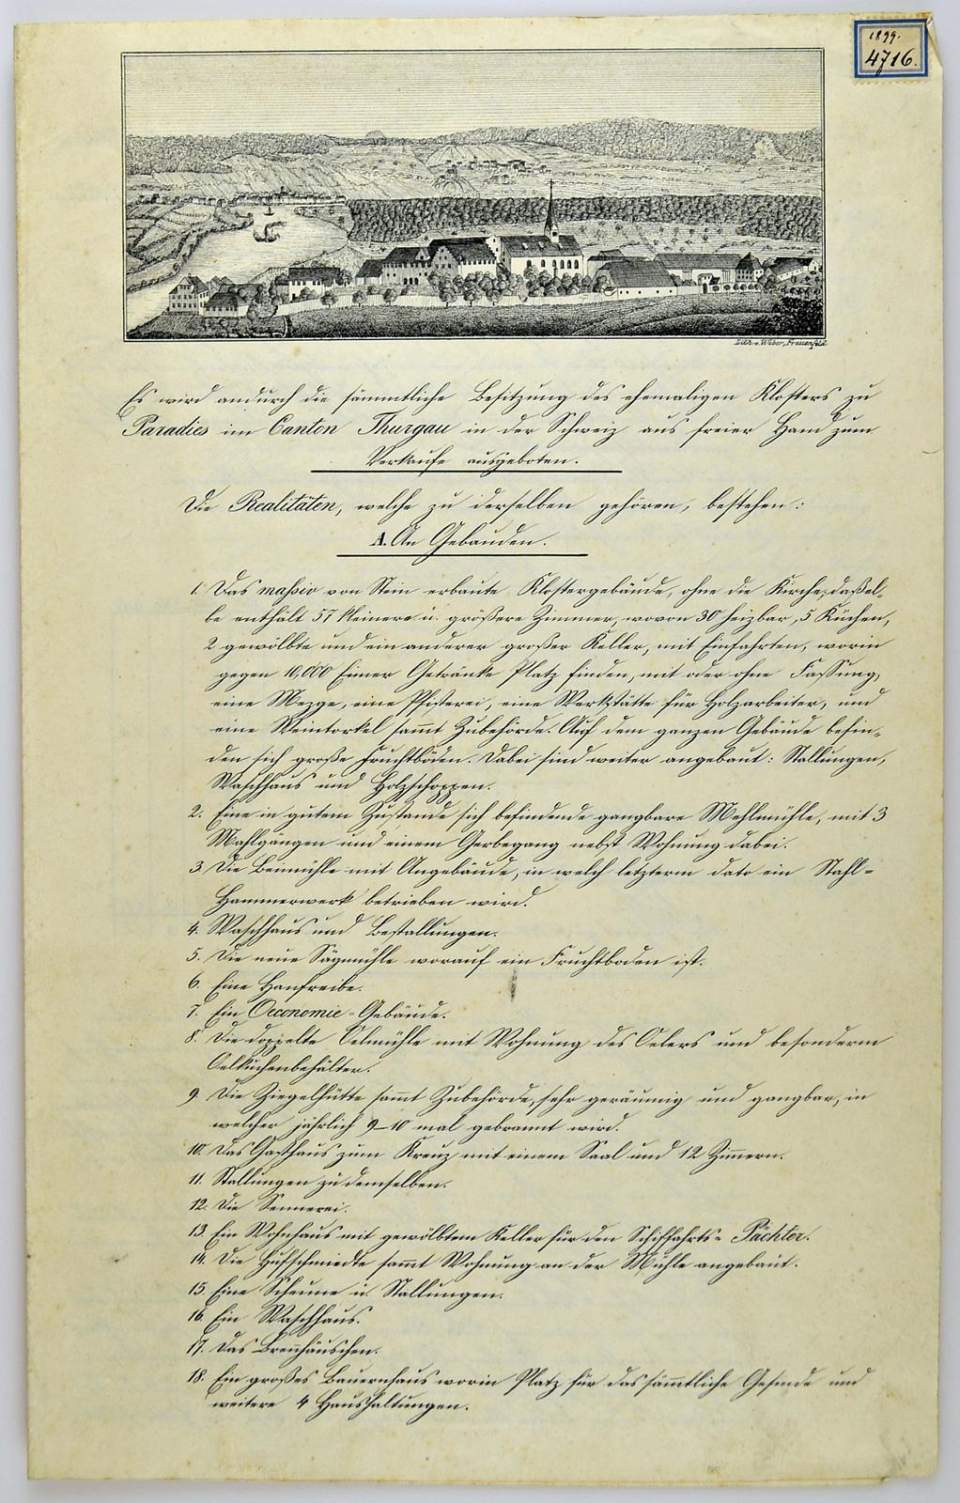 1899.
4716.
Lith. v. Weber, Frauenfeld
Es wird andurch die sämmtliche Besitzung des ehemaligen Klosters zu
Paradies im Canton Thurgau in der Schweiz aus freier Hand zum
Verkaufe ausgeboten.
Die Realitäten, welche zu derselben gehören, bestehen:
A. An Gebäuden.
1. Das massiv von Stein erbaute Klostergebäude, ohne die Kirche; daßel-
be enthält 57 kleinere u. größere Zimmer, wovon 30 heizbar, 5 Küchen,
2 gewölbte und ein anderer großer Keller, mit Einfahrten, worin
gegen 10,000 Eimer Getränke Platz finden, mit oder ohne Fassung,
eine Mezge, eine Pfisterei, eine Werkstätte für Holzarbeiter, und
eine Weintorkel sammt Zubehörde. Auf dem ganzen Gebäude befin-
den sich große Fruchtböden. Dabei sind weiter angebaut: Stallungen,
Waschhaus und Holzschoppen.
2. Eine in gutem Zustande sich befindende gangbare Mehlmühle, mit 3
Mahlgängen und einem Gerbegang nebst Wohnung dabei.
3. Die Beimühle mit Angebäude, in welch letzterm dato ein Stahl-
Hammerwerk betrieben wird.
4. Waschhaus und Bestallungen.
5. Die neue Sägmühle worauf ein Fruchtboden ist.
6. Eine Hanfreibe.
7. Ein Oeconomie-Gebäude.
8. Die doppelte Oelmühle mit Wohnung des Oelers und besonderm
Oelkuchenbehälter.
9. Die Ziegelhütte sammt Zubehörde, sehr geräumig und gangbar, in
welcher jährlich 9-10 mal gebrannt wird.
10. Das Gasthaus zum Kreuz mit einem Saal und 12 Zimmern.
11. Stallungen zu demselben.
12. Die Sennerei.
13. Ein Wohnhaus mit gewölbtem Keller für den Schiffahrts-Pächter.
14. Die Hufschmiedte sammt Wohnung an der Mühle angebaut.
15. Eine Scheune u. Stallungen.
16. Ein Waschhaus.
17. Das Brennhäuschen.
18. Ein großes Bauernhaus worin Platz für das sämmtliche Gesinde und
weitere 4 Haushaltungen.